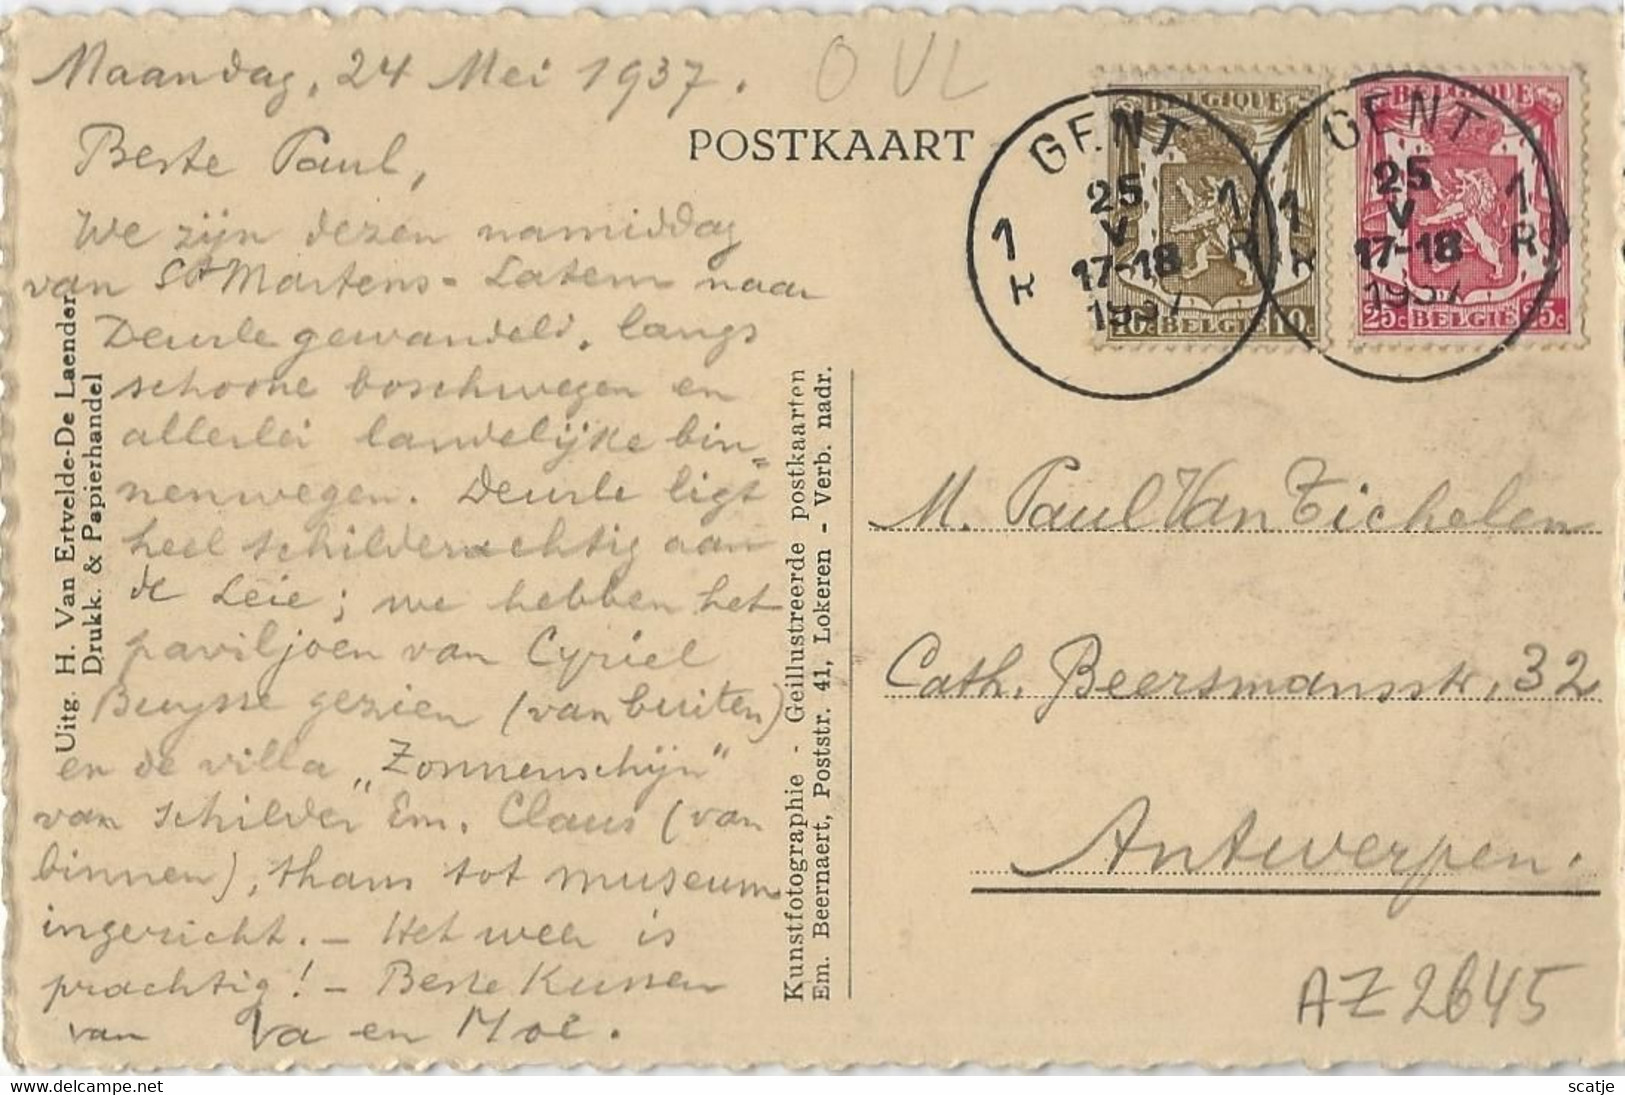 Maandag, 24 Mei 1937.
O VL
Beste Paul,
We zijn dezen namiddag
van St Martens-Latem naar
Deurle gewandeld, langs
schoone boschwegen en
allerlei landelijke bin=
nenwegen. Deurle ligt
heel schilderachtig aan
de Leie; we hebben het
paviljoen van Cyriel
Buysse gezien (van buiten)
en de villa „Zonneschijn"
van schilder Em. Claus (van
binnen), thans tot museum
ingericht. - Het weer is
prachtig! - Beste Kussen
van Va en Moe.
Uitg. H. Van Ertvelde-De Laender
Drukk. & Papierhandel
POSTKAART
Kunstfotographie - Geillustreerde postkaarten
Em. Beernaert, Poststr. 41, Lokeren - Verb. nadr.
BELGIQUE
10c BELGIE 10c
BELGIQUE
25c BELGIE 25c
GENT
1 1
25
V
17-18
1937
R R
GENT
1 1
25
V
17-18
1937
R R
M. Paul Van Tichelen
Cath. Beersmansstr, 32
Antwerpen.
AZ2645
© Delcampe.net
scatje